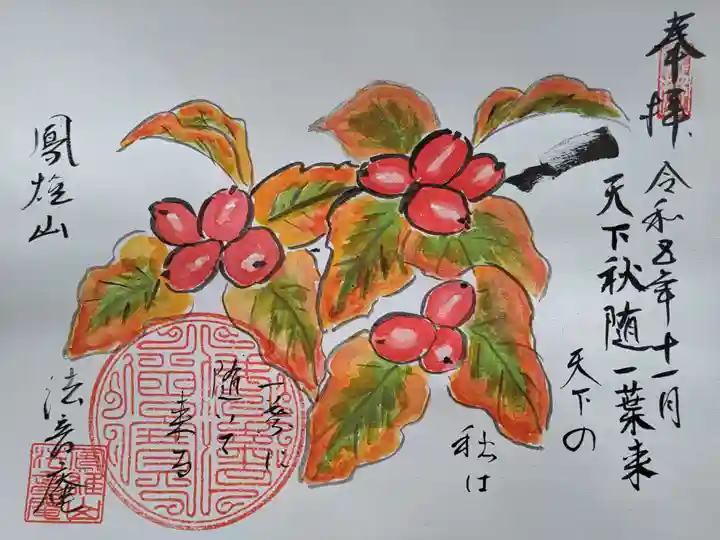 奉拝
令和五年十一月
天下秋随一葉来
天下の
秋は
一葉に
随いて
来る
鳳雄山
法音庵